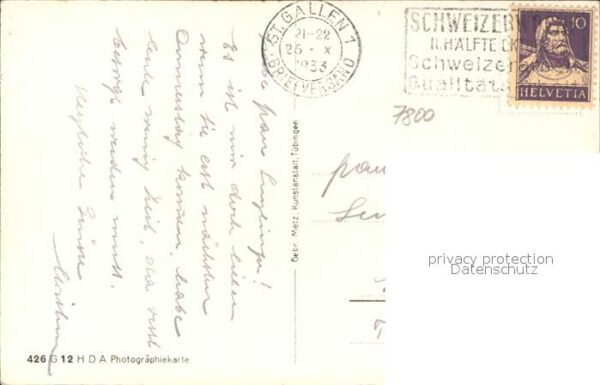 ST. GALLEN 1
21-22
25. X
1933
BRIEFVERSAND
SCHWEIZER
II. HÄLFTE OK
Schweizer
Qualitäts
10
HELVETIA
7800
Liebe Frau
Es ist mir doch lieber
wenn Sie erst nächsten
Donnerstag kommen, habe
heute wenig Zeit, da recht
besorgt werden muss.
Herzliche Grüsse
Gebr. Metz, Kunstanstalt, Tübingen
privacy protection
Datenschutz
426 G 12 H D A Photographiekarte